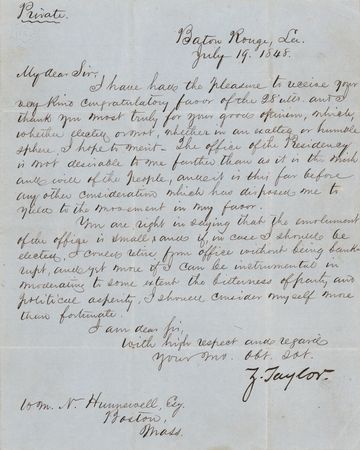 Private.
Baton Rouge, La.
July 19. 1848.
My dear Sir,
I have had the pleasure to receive your
very kind congratulatory favor of the 28 ulto. and I
thank you most truly for your good opinion, which,
whether elected or not, whether in an exalted or humble
sphere I hope to merit— The office of the Presidency
is not desirable to me further than as it is the wish
and will of the People, and it is this far before
any other consideration which has disposed me to
yield to the movement in my favor.
You are right in saying that the emolument
of the office is small; and if, in case I should be
elected, I could retire from office without being bank-
rupt, and yet more if I can be instrumental in
moderating to some extent the bitterness of party and
political asperity, I should consider myself more
than fortunate.
I am dear Sir,
With high respect and regard
Your Mo. Obt. Svt.
Z. Taylor.
Wm. N. Hunnewell, Esq.
Boston,
Mass.